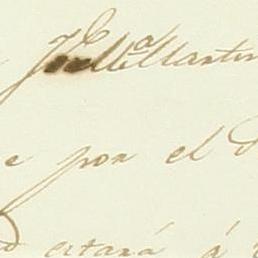 José M.ª Martin
e por el
estará á